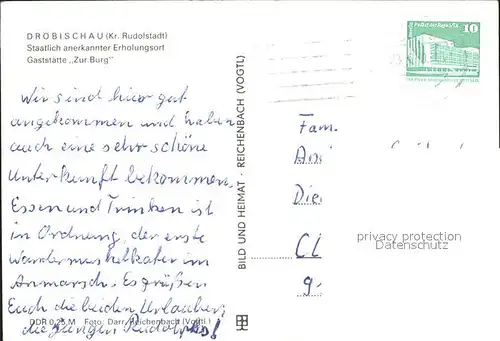 DRÖBISCHAU (Kr. Rudolstadt)
Staatlich anerkannter Erholungsort
Gaststätte „Zur Burg"
Wir sind hier gut
angekommen und haben
auch eine sehr schöne
Unterkunft bekommen.
Essen und Trinken ist
in Ordnung, der erste
Wandermuskelkater im
Anmarsch. Es grüßen
Euch die beiden Urlauber,
die Jungen
DDR 0,25 M Foto: Darr, Reichenbach (Vogtl.)
BILD UND HEIMAT · REICHENBACH (VOGTL)
10
Fam.
Die
privacy protection
Datenschutz